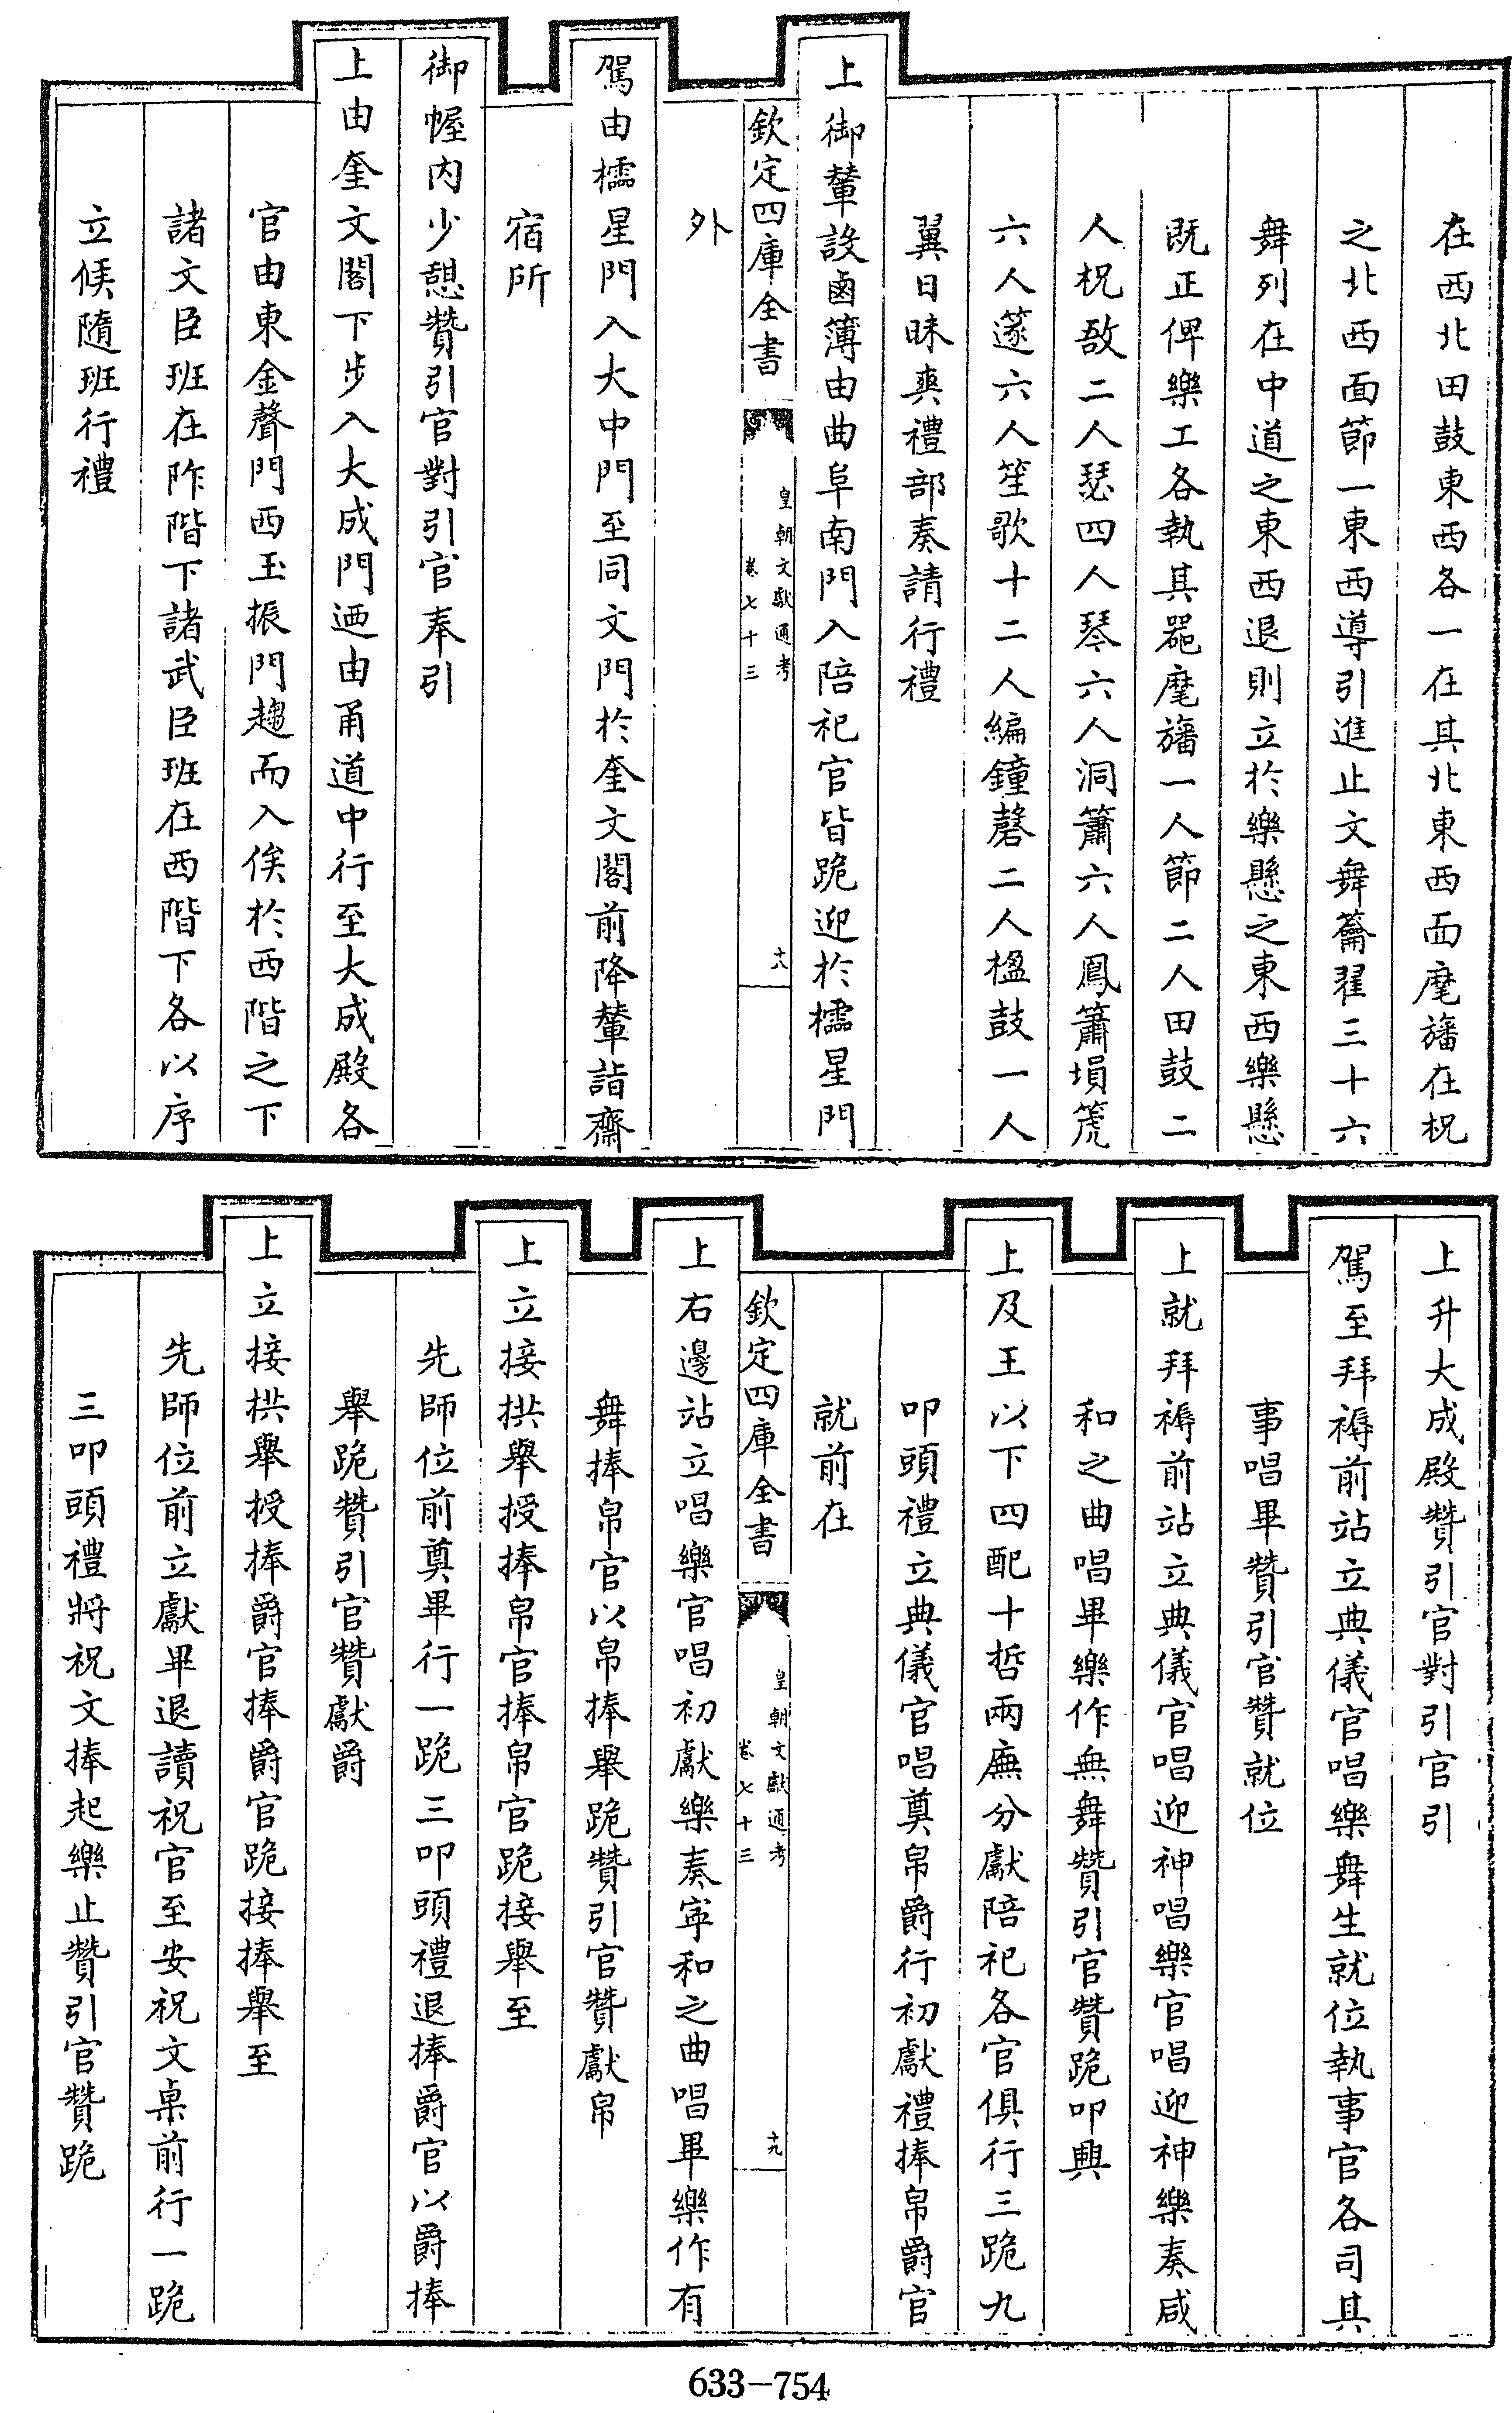 在西北田鼓東西各一在其北東西面麾旛在柷
之北西面節一東西導引進止文舞籥翟三十六
舞列在中道之東西退則立於樂懸之東西樂懸
既正俾樂工各執其器麾旛一人節二人田鼓二
人柷敔二人瑟四人琴六人洞簫六人鳳簫塤箎
六人篴六人笙歌十二人編鐘磬二人楹鼓一人
翼日昧爽禮部奏請行禮
上御輦設鹵簿由曲阜南門入陪祀官皆跪迎於櫺星門
欽定四庫全書
皇朝文獻通考
卷七十三
十八
外
駕由櫺星門入大中門至同文門於奎文閣前降輦詣齋
宿所
御幄内少憇贊引官對引官奉引
上由奎文閣下步入大成門迺由甬道中行至大成殿各
官由東金聲門西玉振門趨而入俟於西階之下
諸文臣班在阼階下諸武臣班在西階下各以序
立候隨班行禮
上升大成殿贊引官對引官引
駕至拜褥前站立典儀官唱樂舞生就位執事官各司其
事唱畢贊引官贊就位
上就拜褥前站立典儀官唱迎神唱樂官唱迎神樂奏咸
和之曲唱畢樂作無舞贊引官贊跪叩興
上及王以下四配十哲兩廡分獻陪祀各官俱行三跪九
叩頭禮立典儀官唱奠帛爵行初獻禮捧帛爵官
就前在
欽定四庫全書
皇朝文獻通考
卷七十三
十九
上右邊站立唱樂官唱初獻樂奏寧和之曲唱畢樂作有
舞捧帛官以帛捧舉跪贊引官贊獻帛
上立接拱舉授捧帛官捧帛官跪接舉至
先師位前奠畢行一跪三叩頭禮退捧爵官以爵捧
舉跪贊引官贊獻爵
上立接拱舉授捧爵官捧爵官跪接捧舉至
先師位前立獻畢退讀祝官至安祝文桌前行一跪
三叩頭禮將祝文捧起樂止贊引官贊跪
633-754